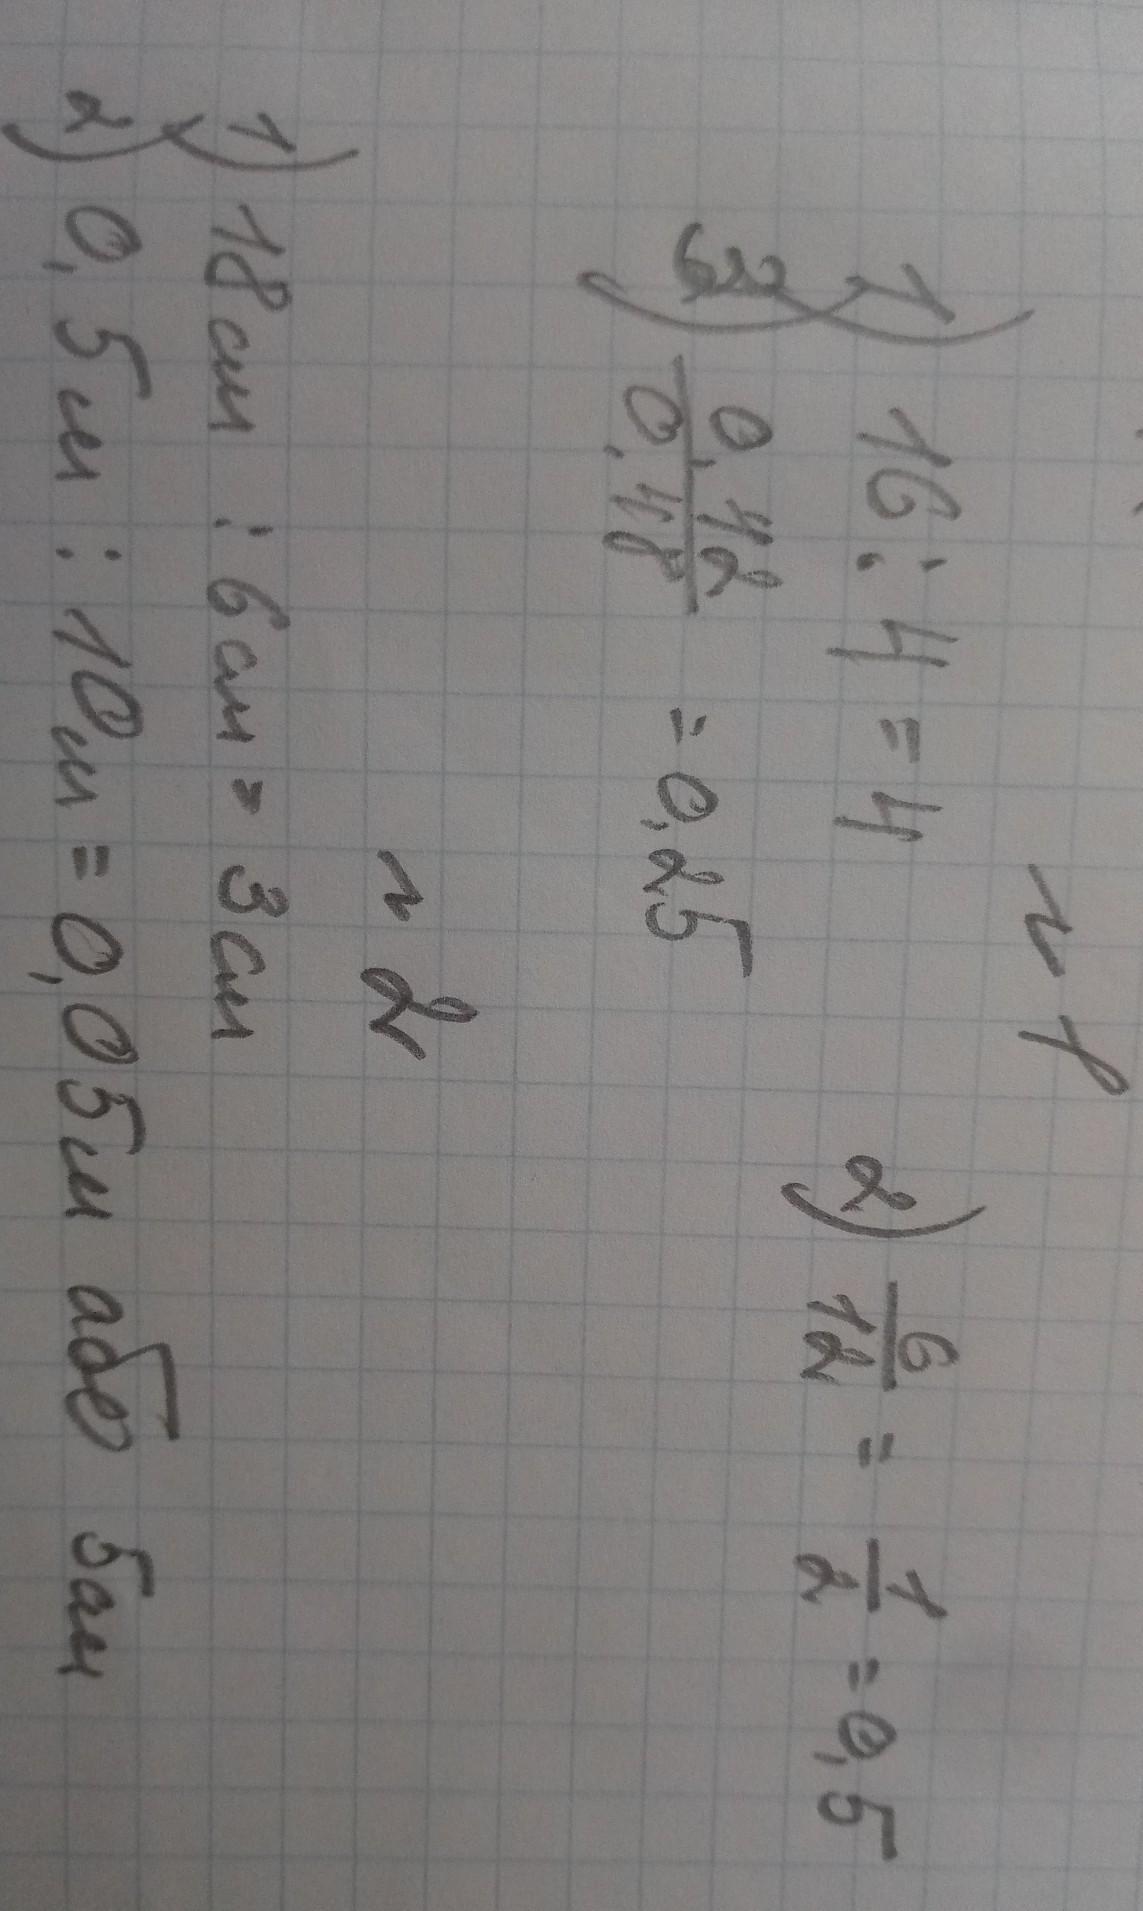 n 1
1) 16 : 4 = 4 2) 6/12 = 1/2 = 0,5
3) 0,12/0,48 = 0,25
n 2
1) 18 см : 6 см = 3 см
2) 0,5 м : 10 м = 0,05 м або 5 см